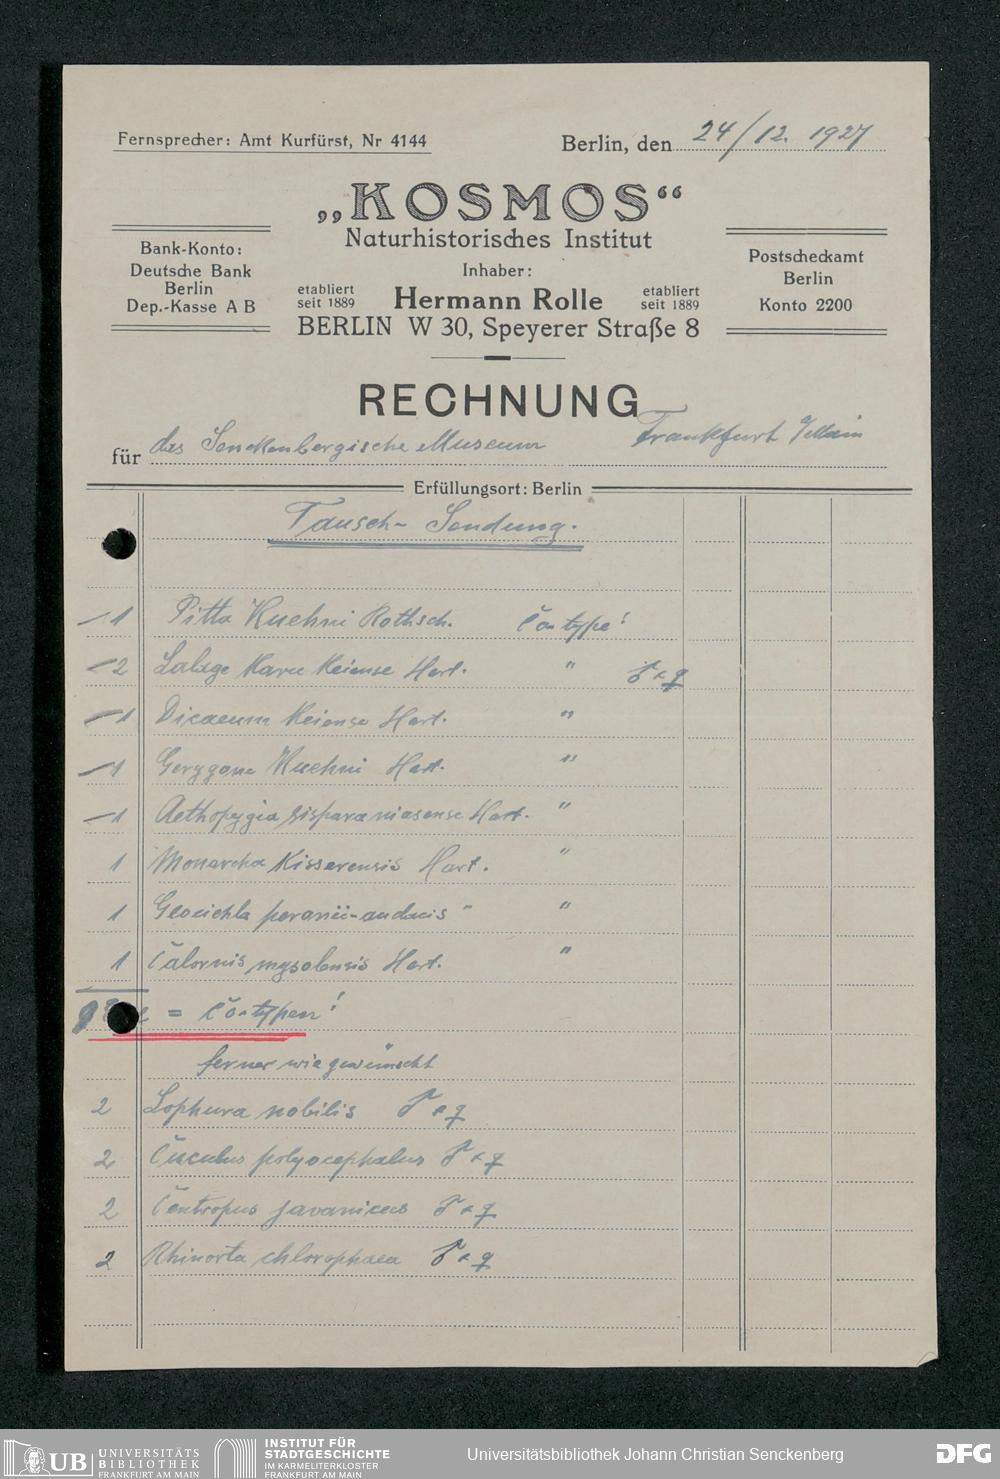 Fernsprecher: Amt Kurfürst, Nr 4144
Berlin, den 24/12. 1927
„KOSMOS“
Naturhistorisches Institut
Inhaber:
Bank-Konto:
Deutsche Bank
Berlin
Dep.-Kasse A B
etabliert
seit 1889
Hermann Rolle
etabliert
seit 1889
BERLIN W 30, Speyerer Straße 8
Postscheckamt
Berlin
Konto 2200
RECHNUNG
für das Senckenbergische Museum Frankfurt
Erfüllungsort: Berlin
Tausch- Sendung.
1 Pitta Kuehni Rothsch. Cotype!
2 Lalage Karu Keiense Hart. " ♂ + ♀
1 Dicaeum Keiense Hart. "
1 Gerygone Kuehni Hart. "
1 Aethopygia siparaja niasense Hart. "
1 Monarcha Kisserensis Hart. "
1 Geocichla peronii-audacis " "
1 Calornis mysolensis Hart. "
9 = Cotypen!
ferner wie gewünscht
2 Lophura nobilis ♂ + ♀
2 Cuculus polyocephalus ♂ + ♀
2 Centropus javanicus ♂ + ♀
2 Rhinorta chlorophaea ♂ + ♀
UB UNIVERSITÄTS
BIBLIOTHEK
FRANKFURT AM MAIN
INSTITUT FÜR
STADTGESCHICHTE
IM KARMELITERKLOSTER
FRANKFURT AM MAIN
Universitätsbibliothek Johann Christian Senckenberg
DFG